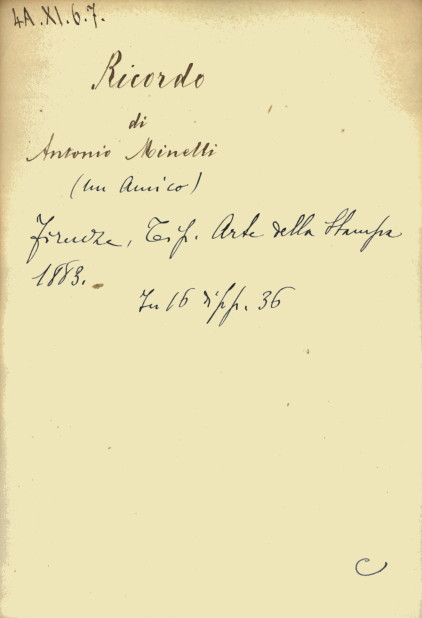 4A.XI.6.7.
Ricordo
di
Antonio Minelli
(Un Amico)
Firenze, Tip. Arte della Stampa
1883.
In 16 di pp. 36
C